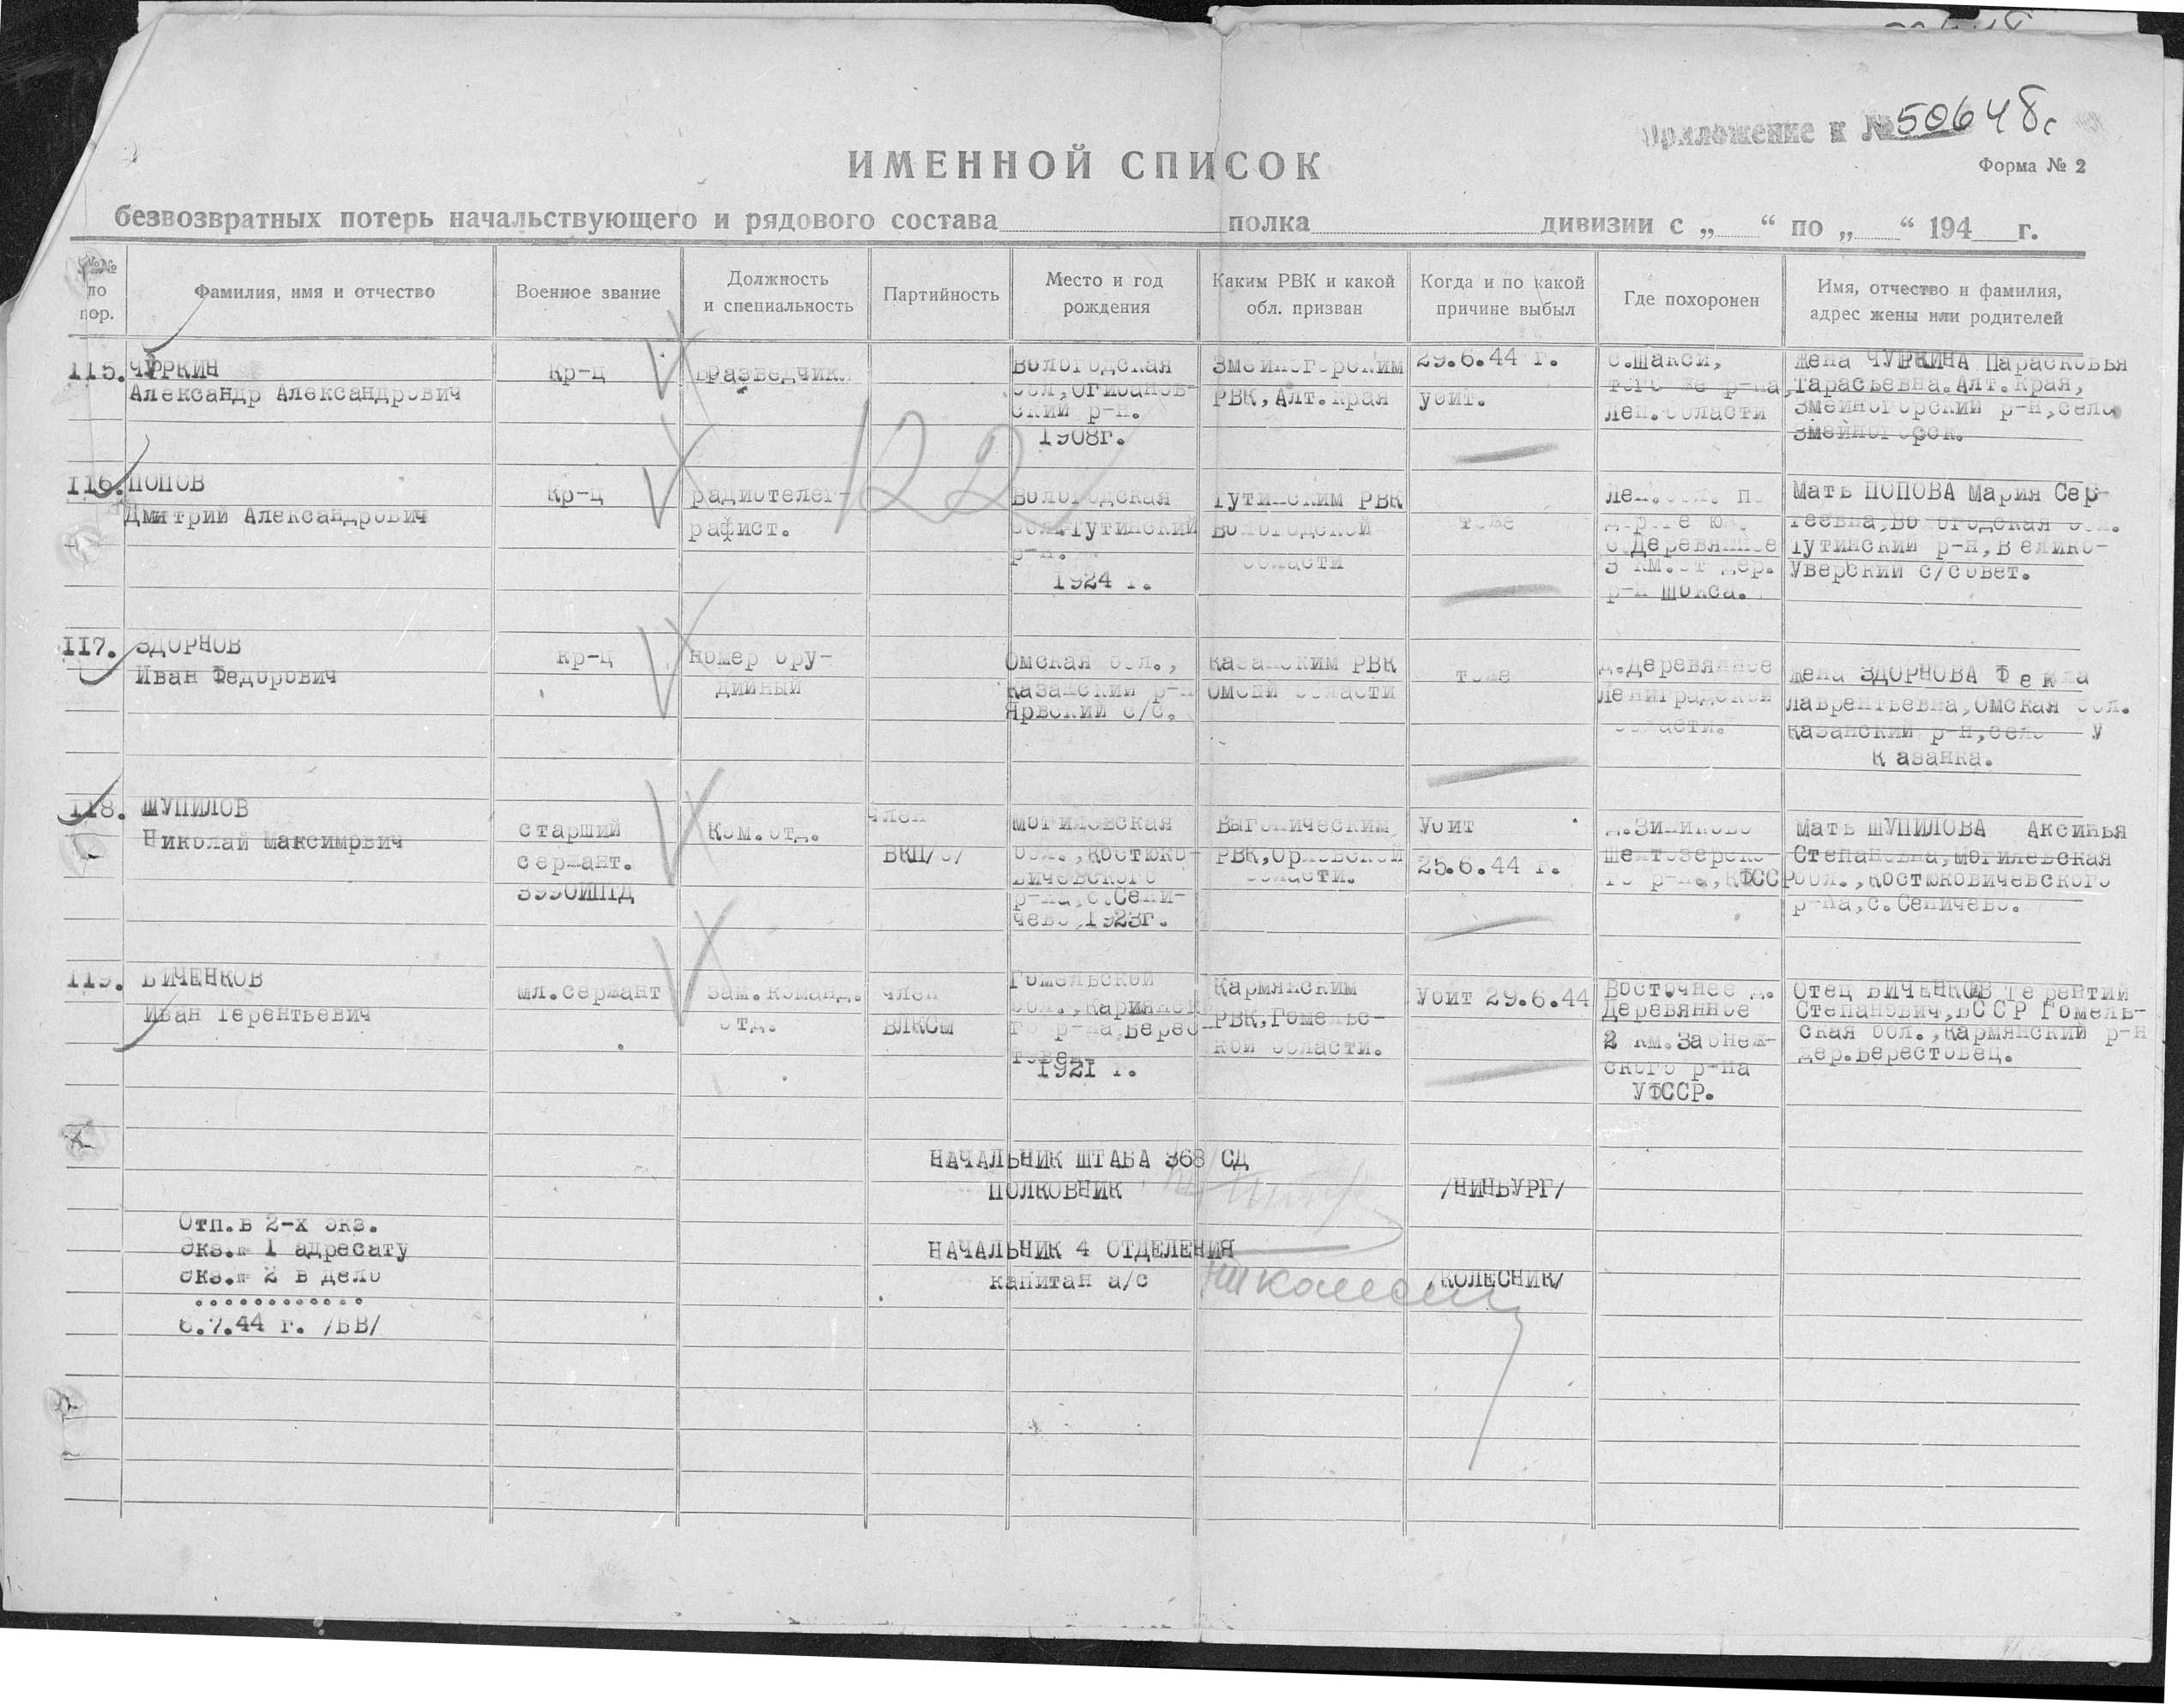 Приложение к № 50648с
ИМЕННОЙ СПИСОК
Форма № 2
безвозвратных потерь начальствующего и рядового состава полка дивизии с „ “ по „ “ 194 г.
№№ по пор.
Фамилия, имя и отчество
Военное звание
Должность и специальность
Партийность
Место и год рождения
Каким РВК и какой обл. призван
Когда и по какой причине выбыл
Где похоронен
Имя, отчество и фамилия, адрес жены или родителей
115. ЧУРКИН
Александр Александрович
Кр-ц
разведчик
Вологодская
обл, 
ский р-н.
1908г.
Змеиногорским
РВК, Алт.края
29.6.44 г.
убит.
с.Шакси,
того же р-на,
Лен.области
жена ЧУРКИНА Парасковья
Тарасьевна.Алт.края,
Змейногорский р-н, село
Змейногорск.
122
116. ПОПОВ
Дмитрий Александрович
Кр-ц
радиотелег-
рафист.
Вологодская
обл.Тутинский
р-н.
1924 г.
Тутинским РВК
Вологодской
области
тоже
Лен.обл. по
дороге
с.Деревянное
3 км.от дер.
р-н Шокса.
Мать ПОПОВА Мария Сер-
геевна, Вологодская обл.
Тутинский р-н, Велико-
Уверский с/совет.
117. ЗДОРНОВ
Иван Федорович
кр-ц
номер ору-
дийный
Омская обл.,
Казанский р-н
Ярвский с/с.
Казанским РВК
Омской области
тоже
д.Деревянное
Ленинградской
области.
жена ЗДОРНОВА Фекла
Лаврентьевна, Омская обл.
Казанский р-н, село У
Казанка.
118. ШУПИЛОВ
Николай Максимович
старший
сержант.
399ОИПТД
Ком.отд.
член
ВКП/б/
Могилевская
обл., Костюко-
вичевского
р-на, с.Сени-
чево, 1923г.
Выгоническим
РВК, Орловской
области.
Убит
25.6.44 г.
Шелтозерско-
го р-на, КФССР
Мать ШУПИЛОВА Аксинья
Степановна, Могилевская
обл., Костюковичевского
р-на, с.Сеничево.
119. БИЧЕНКОВ
Иван Терентьевич
мл.сержант
Зам.команд.
отд.
член
ВЛКСМ
Гомельской
обл., Кармянско
го р-на, Берес-
товец
1921 г.
Кармянским
РВК, Гомельс-
кой области.
Убит 29.6.44
Восточнее д.
Деревянное
2 км. Заонеж-
ского р-на
УФССР.
Отец БИЧЕНКОВ Терентий
Степанович, БССР Гомель-
ская обл., Кармянский р-н
дер.Берестовец.
НАЧАЛЬНИК ШТАБА 368 СД
ПОЛКОВНИК /НИНБУРГ/
НАЧАЛЬНИК 4 ОТДЕЛЕНИЯ
капитан а/с /КОЛЕСНИК/
Отп.в 2-х экз.
Экз.№ 1 адресату
Экз.№ 2 в дело
............
6.7.44 г. /БВ/